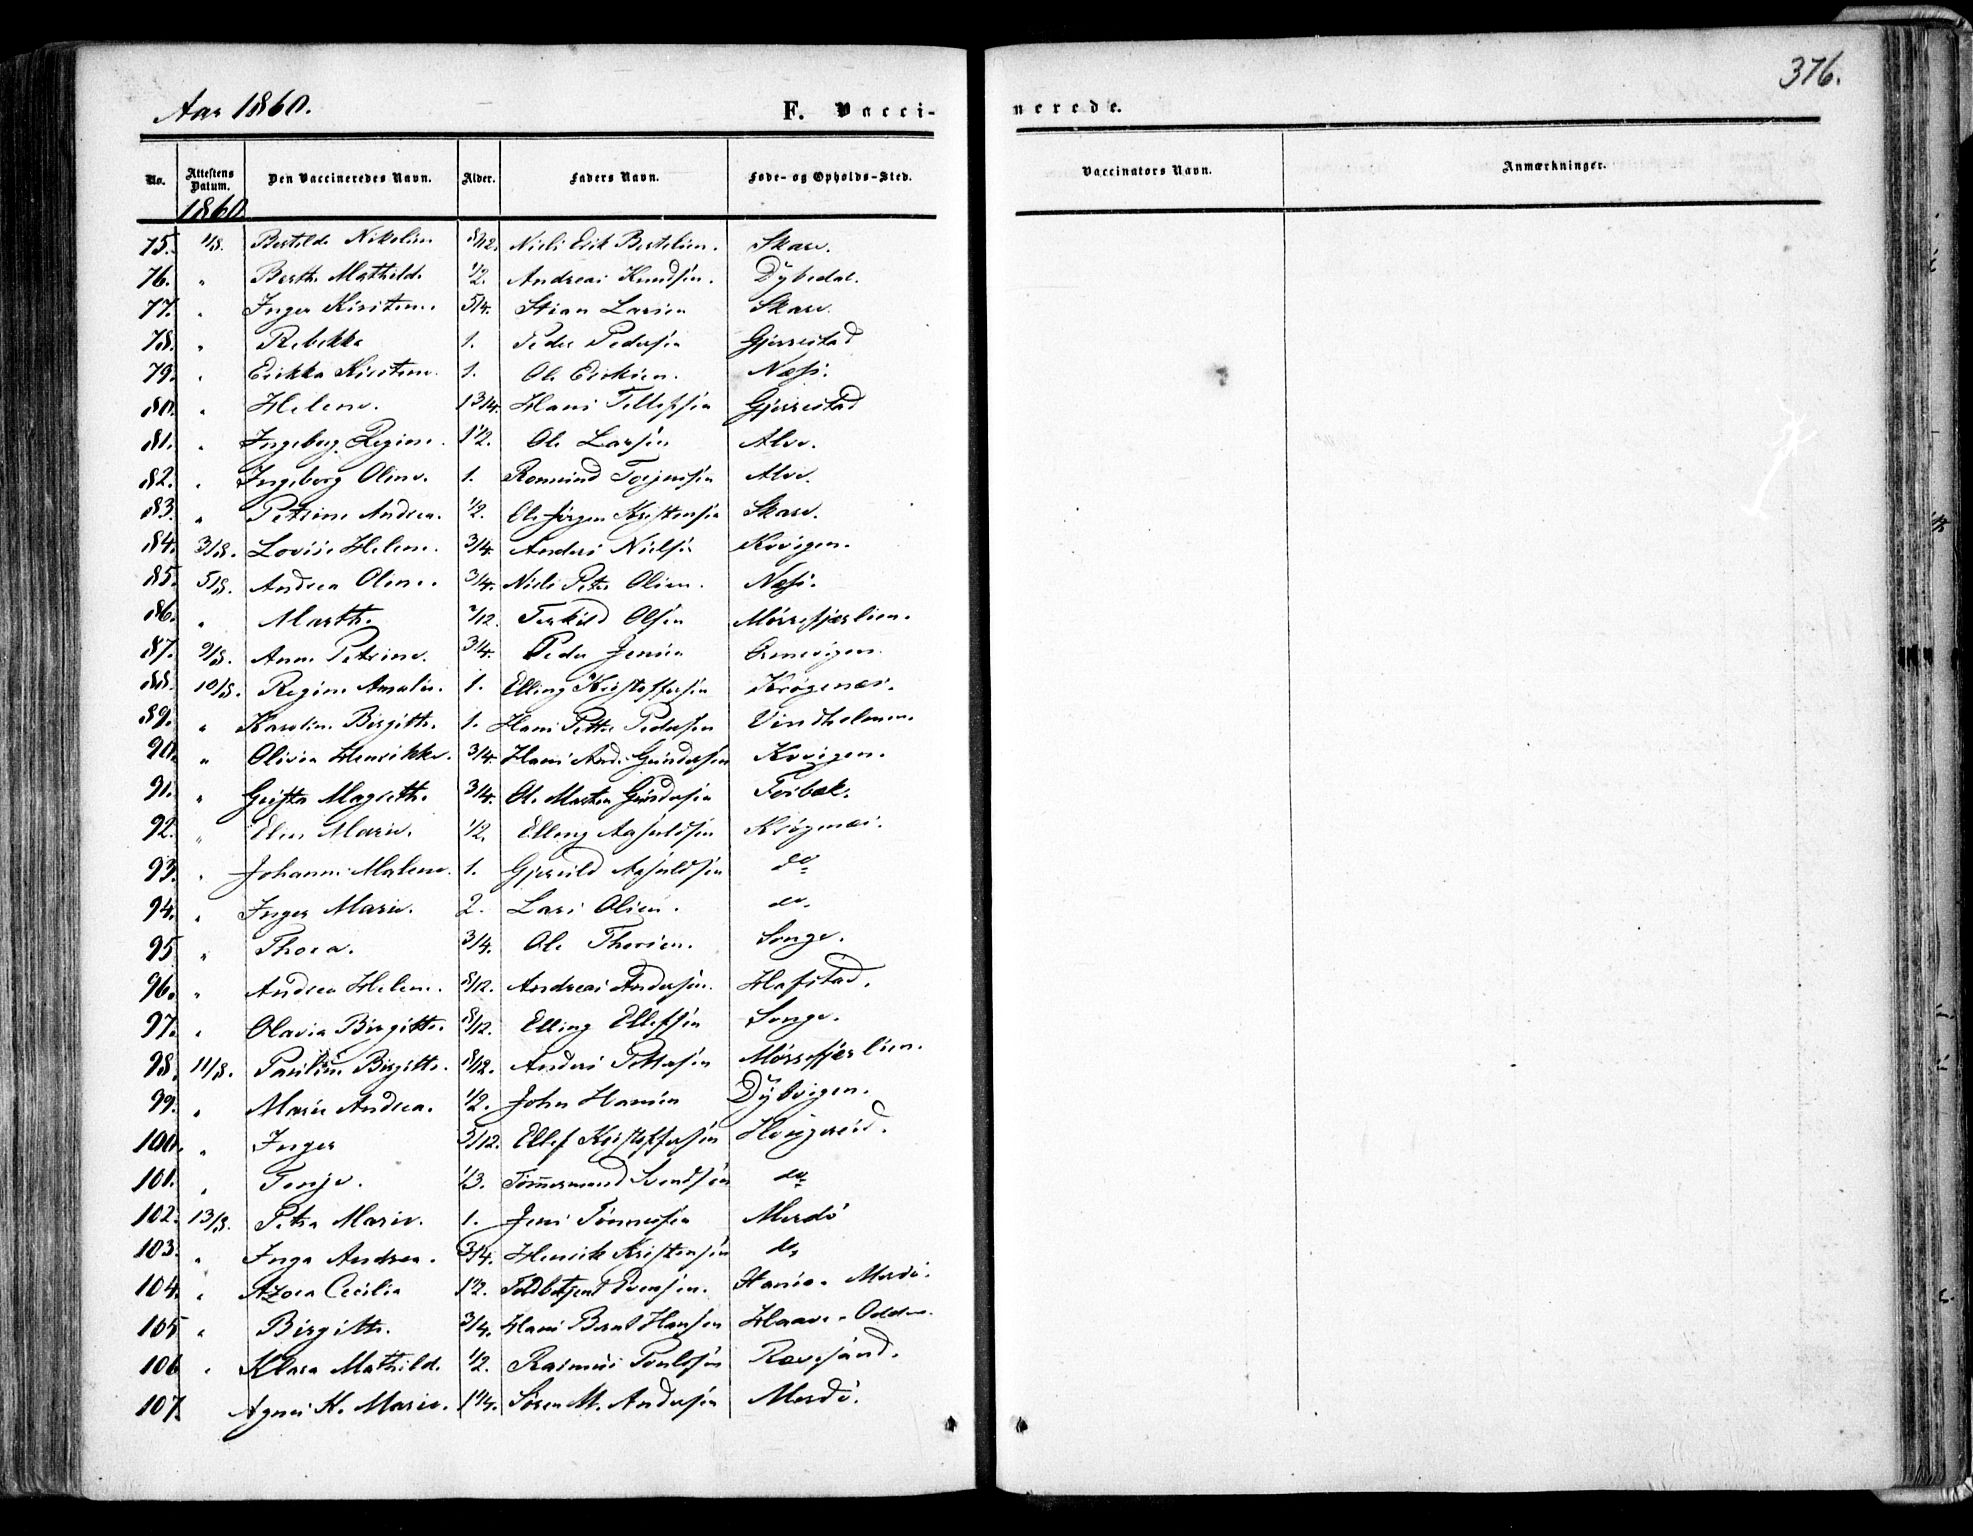 376.
Aar 1860.
F. Vacci-
nerede.
No. Attestens Datum. Den Vaccineredes Navn. Alder. Faders Navn. Føde- og Opholds-Sted. Vaccinators Navn. Anmærkninger.
1860
75. Bertilde Nikoline 8/12. Niels Erik Bertelsen. Skare.
76. " Berthe Mathilde 1/2. Andreas Knudsen. Dybedal.
77. " Inger Kirstine. 5/4. Stian Larsen Skare.
78. " Rebekka 1. Peder Pedersen Gjerrestad
79. " Erikka Kirstine. 1. Ole Eriksen. Næss.
80. " Helene. 1 3/4. Hans Tellefsen Gjerrestad
81. " Ingeborg Regine. 1 1/2. Ole Larsen Alve.
82. " Ingeborg Oline. 1. Romund Torjersen Alve.
83. " Petrine Andrea. 1/2. Ole Jørgen Kristensen Skare.
84. 3/8. Lovise Helene. 3/4. Anders Nielsen Kvigen.
85. 5/8. Andrea Oline. 3/4. Niels Peter Olsen. Næss.
86. " Marthe. /12. Terkild Olsen Mørrefjærlien.
87. 9/8. Anne Petrine. 3/4. Peder Jensen
88. 10/8. Regine Amalie. 1. Elling Kristoffersen Krøgenæs.
89. " Karoline Birgitte. 1. Hans Petter Pedersen Vindholmen.
90. " Olivia Henrikke. 3/4. Hans Andr. Gundersen Kvigen.
91. " Magrethe. 3/4. Ole Martin Gundersen Torbæk.
92. " Elen Marie. 1/2. Elling Asjuldsen Krøgenæs.
93. " Johanne Malene. 1. Gjeruld Asjuldsen do
94. " Inger Marie. 2. Lars Olsen. do.
95 " Thora. 3/4. Ole Thorsen. Songe.
96. " Andrea Helene. 8/12. Andreas Andersen. Hafstad.
97. " Olavia Birgitte. 8/12. Elling Ellefsen Songe.
98. 11/8. Pauline Birgitte. 8/12. Anders Pettersen Mørrefjærlien.
99. " Marie Andrea. 1/2. John Hansen Dybvigen.
100. " Inger 5/12. Ellef Kristoffersen
101. " Terje. 1/3. Tømmermand Svendsen do
102. 13/8. Petra Marie. 1. Jens Tønnesen Merdø
103. " Inga Andrea. 3/4. Henrik Kristensen do
104. " Azora Cecilia 1 1/2. Evensen. Merdø.
105 " Birgitte. 3/4. Hans Bernt Hansen Haave-Odden.
106 " Klara Mathilde. 1/2. Rasmus Poulsen Revesand.
107. Agnes K. Marie. 1 1/4. Søren M. Andersen Merdø.